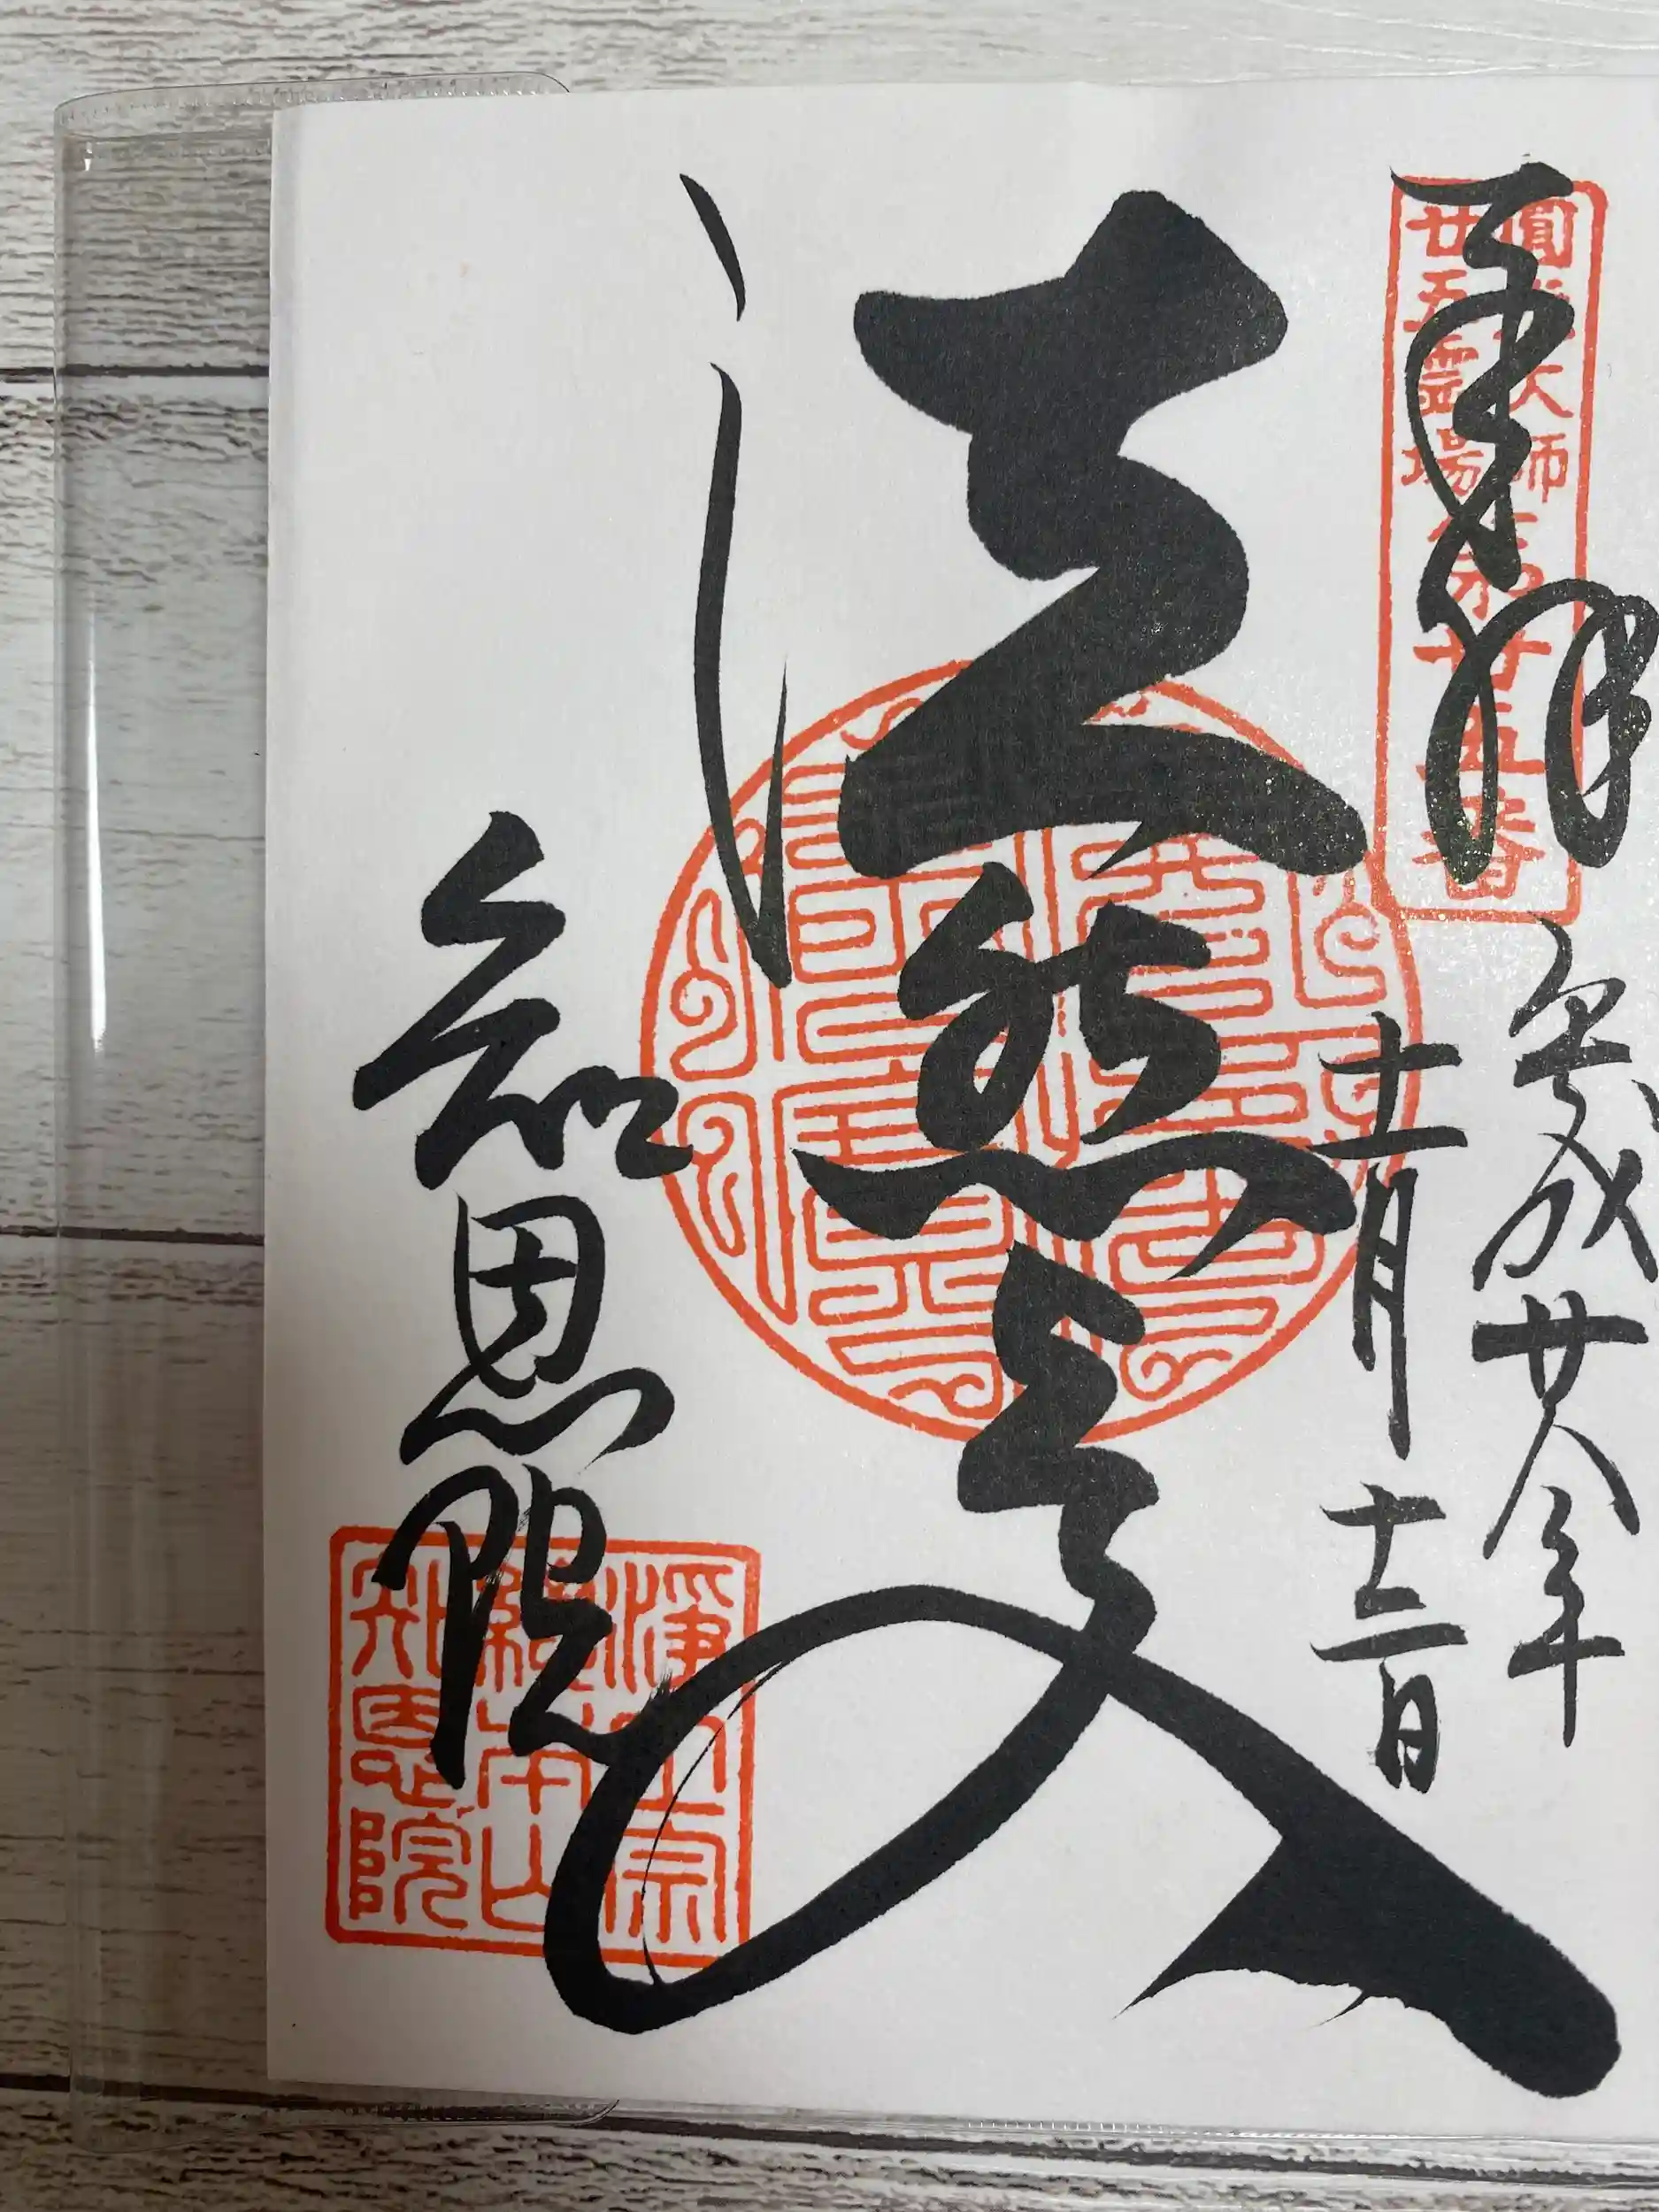 奉拝
圓光大師
廿五霊場
第廿五番
平成廿八年
十一月十二日
法然上人
知恩院
淨土宗
總本山
知恩院